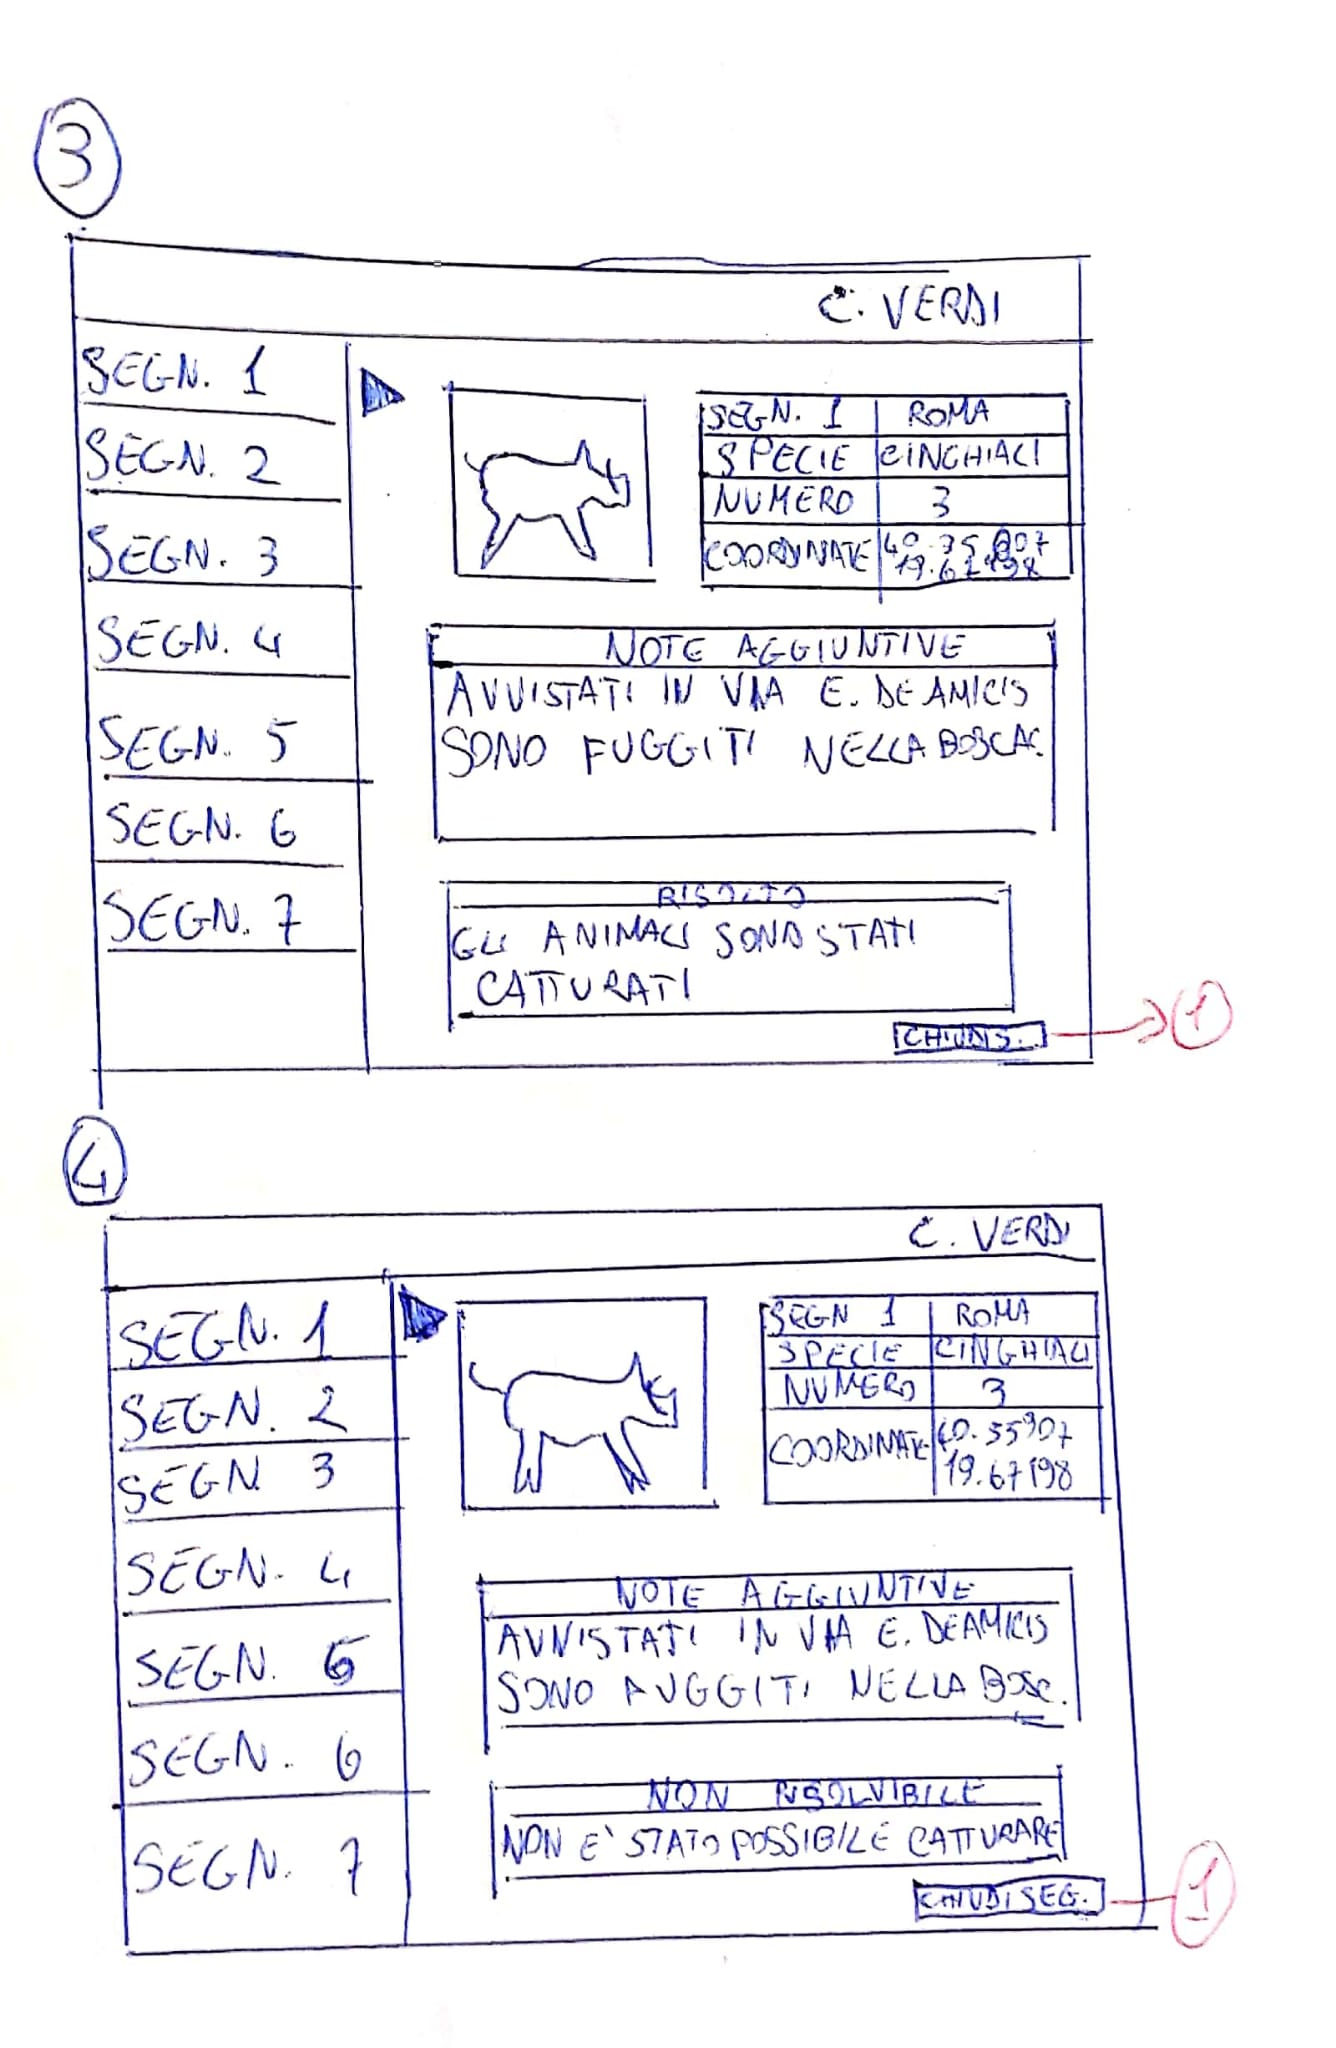 3
C. VERDI
SEGN. 1
SEGN. 2
SEGN. 3
SEGN. 4
SEGN. 5
SEGN. 6
SEGN. 7
SEGN. 1 ROMA
SPECIE CINGHIALI
NUMERO 3
COORDINATE
19.67198
NOTE AGGIUNTIVE
AVVISTATI IN VIA E. DE AMICIS
SONO FUGGITI NELLA BOSCAG.
RISOLTO
GLI ANIMALI SONO STATI
CATTURATI
CHIUDI S.
1
4
C. VERDI
SEGN. 1
SEGN. 2
SEGN 3
SEGN. 4
SEGN. 5
SEGN. 6
SEGN. 7
SEGN 1 ROMA
SPECIE CINGHIALI
NUMERO 3
COORDINATE 40.35907
19.67198
NOTE AGGIUNTIVE
AVVISTATI IN VIA E. DE AMICIS
SONO FUGGITI NELLA BOSC.
NON RISOLVIBILE
NON E' STATO POSSIBILE CATTURARE
CHIUDI SEG.
1